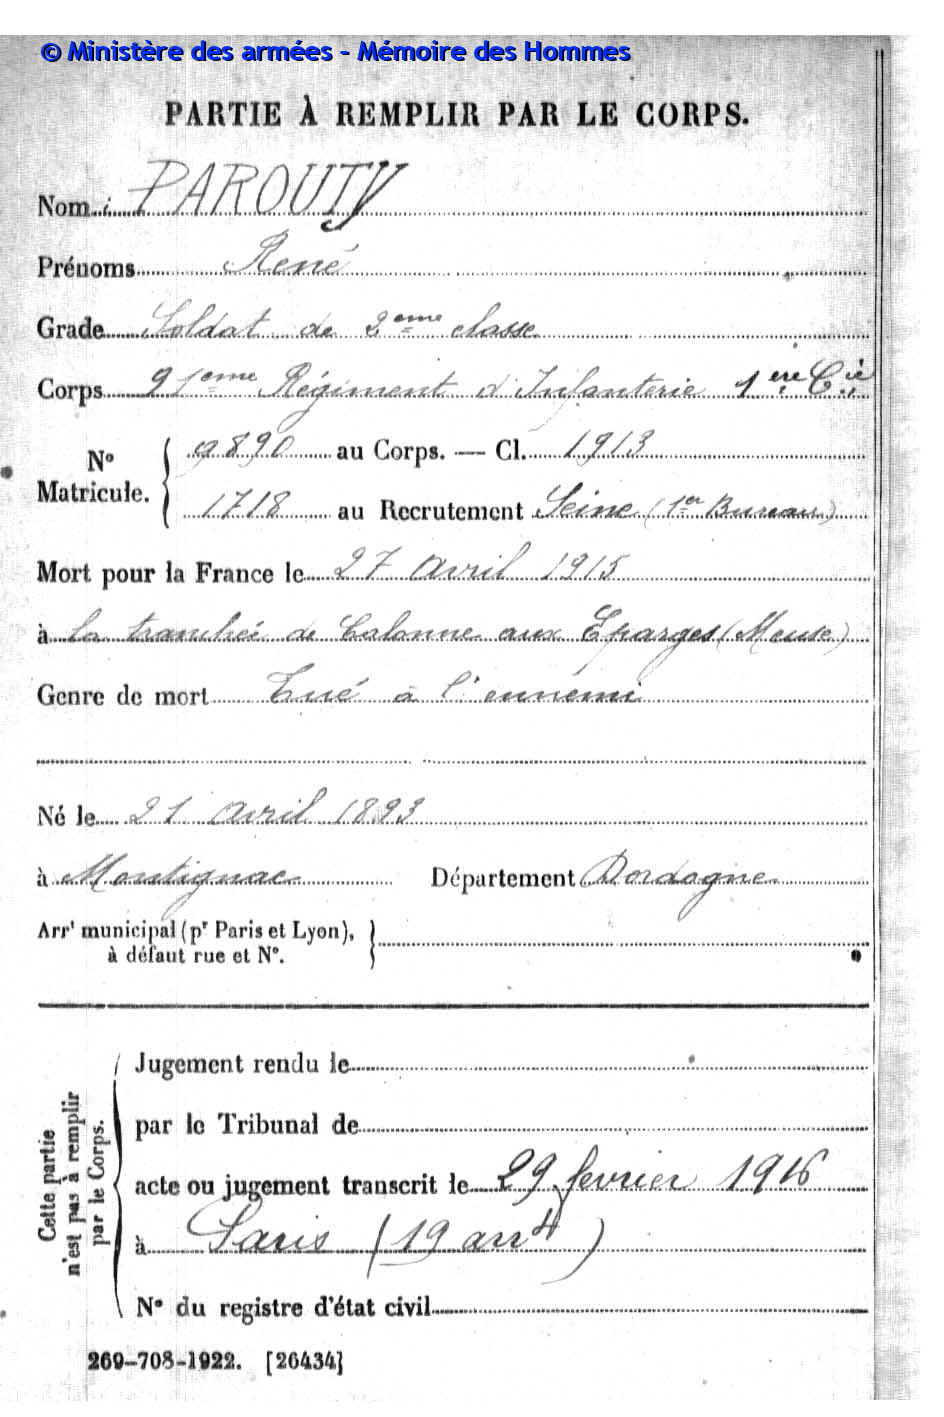 © Ministère des armées - Mémoire des Hommes
PARTIE À REMPLIR PAR LE CORPS.
Nom : PAROUTY
Prénoms René
Grade Soldat de 2eme classe
Corps 91eme Régiment d'Infanterie 1ère Cie
N° Matricule. { 9890 au Corps. — Cl. 1913
1718 au Recrutement Seine (1er Bureau)
Mort pour la France le 27 Avril 1915
à la tranchée de Calonne aux Eparges (Meuse)
Genre de mort Tué à l'ennemi
Né le 21 Avril 1893
à Montignac Département Dordogne
Arrt municipal (pr Paris et Lyon),
à défaut rue et N°. }
Cette partie n'est pas à remplir par le Corps. {
Jugement rendu le
par le Tribunal de
acte ou jugement transcrit le 29 fevrier 1916
à Paris (19 arrt)
N° du registre d'état civil
269-708-1922. [26434]